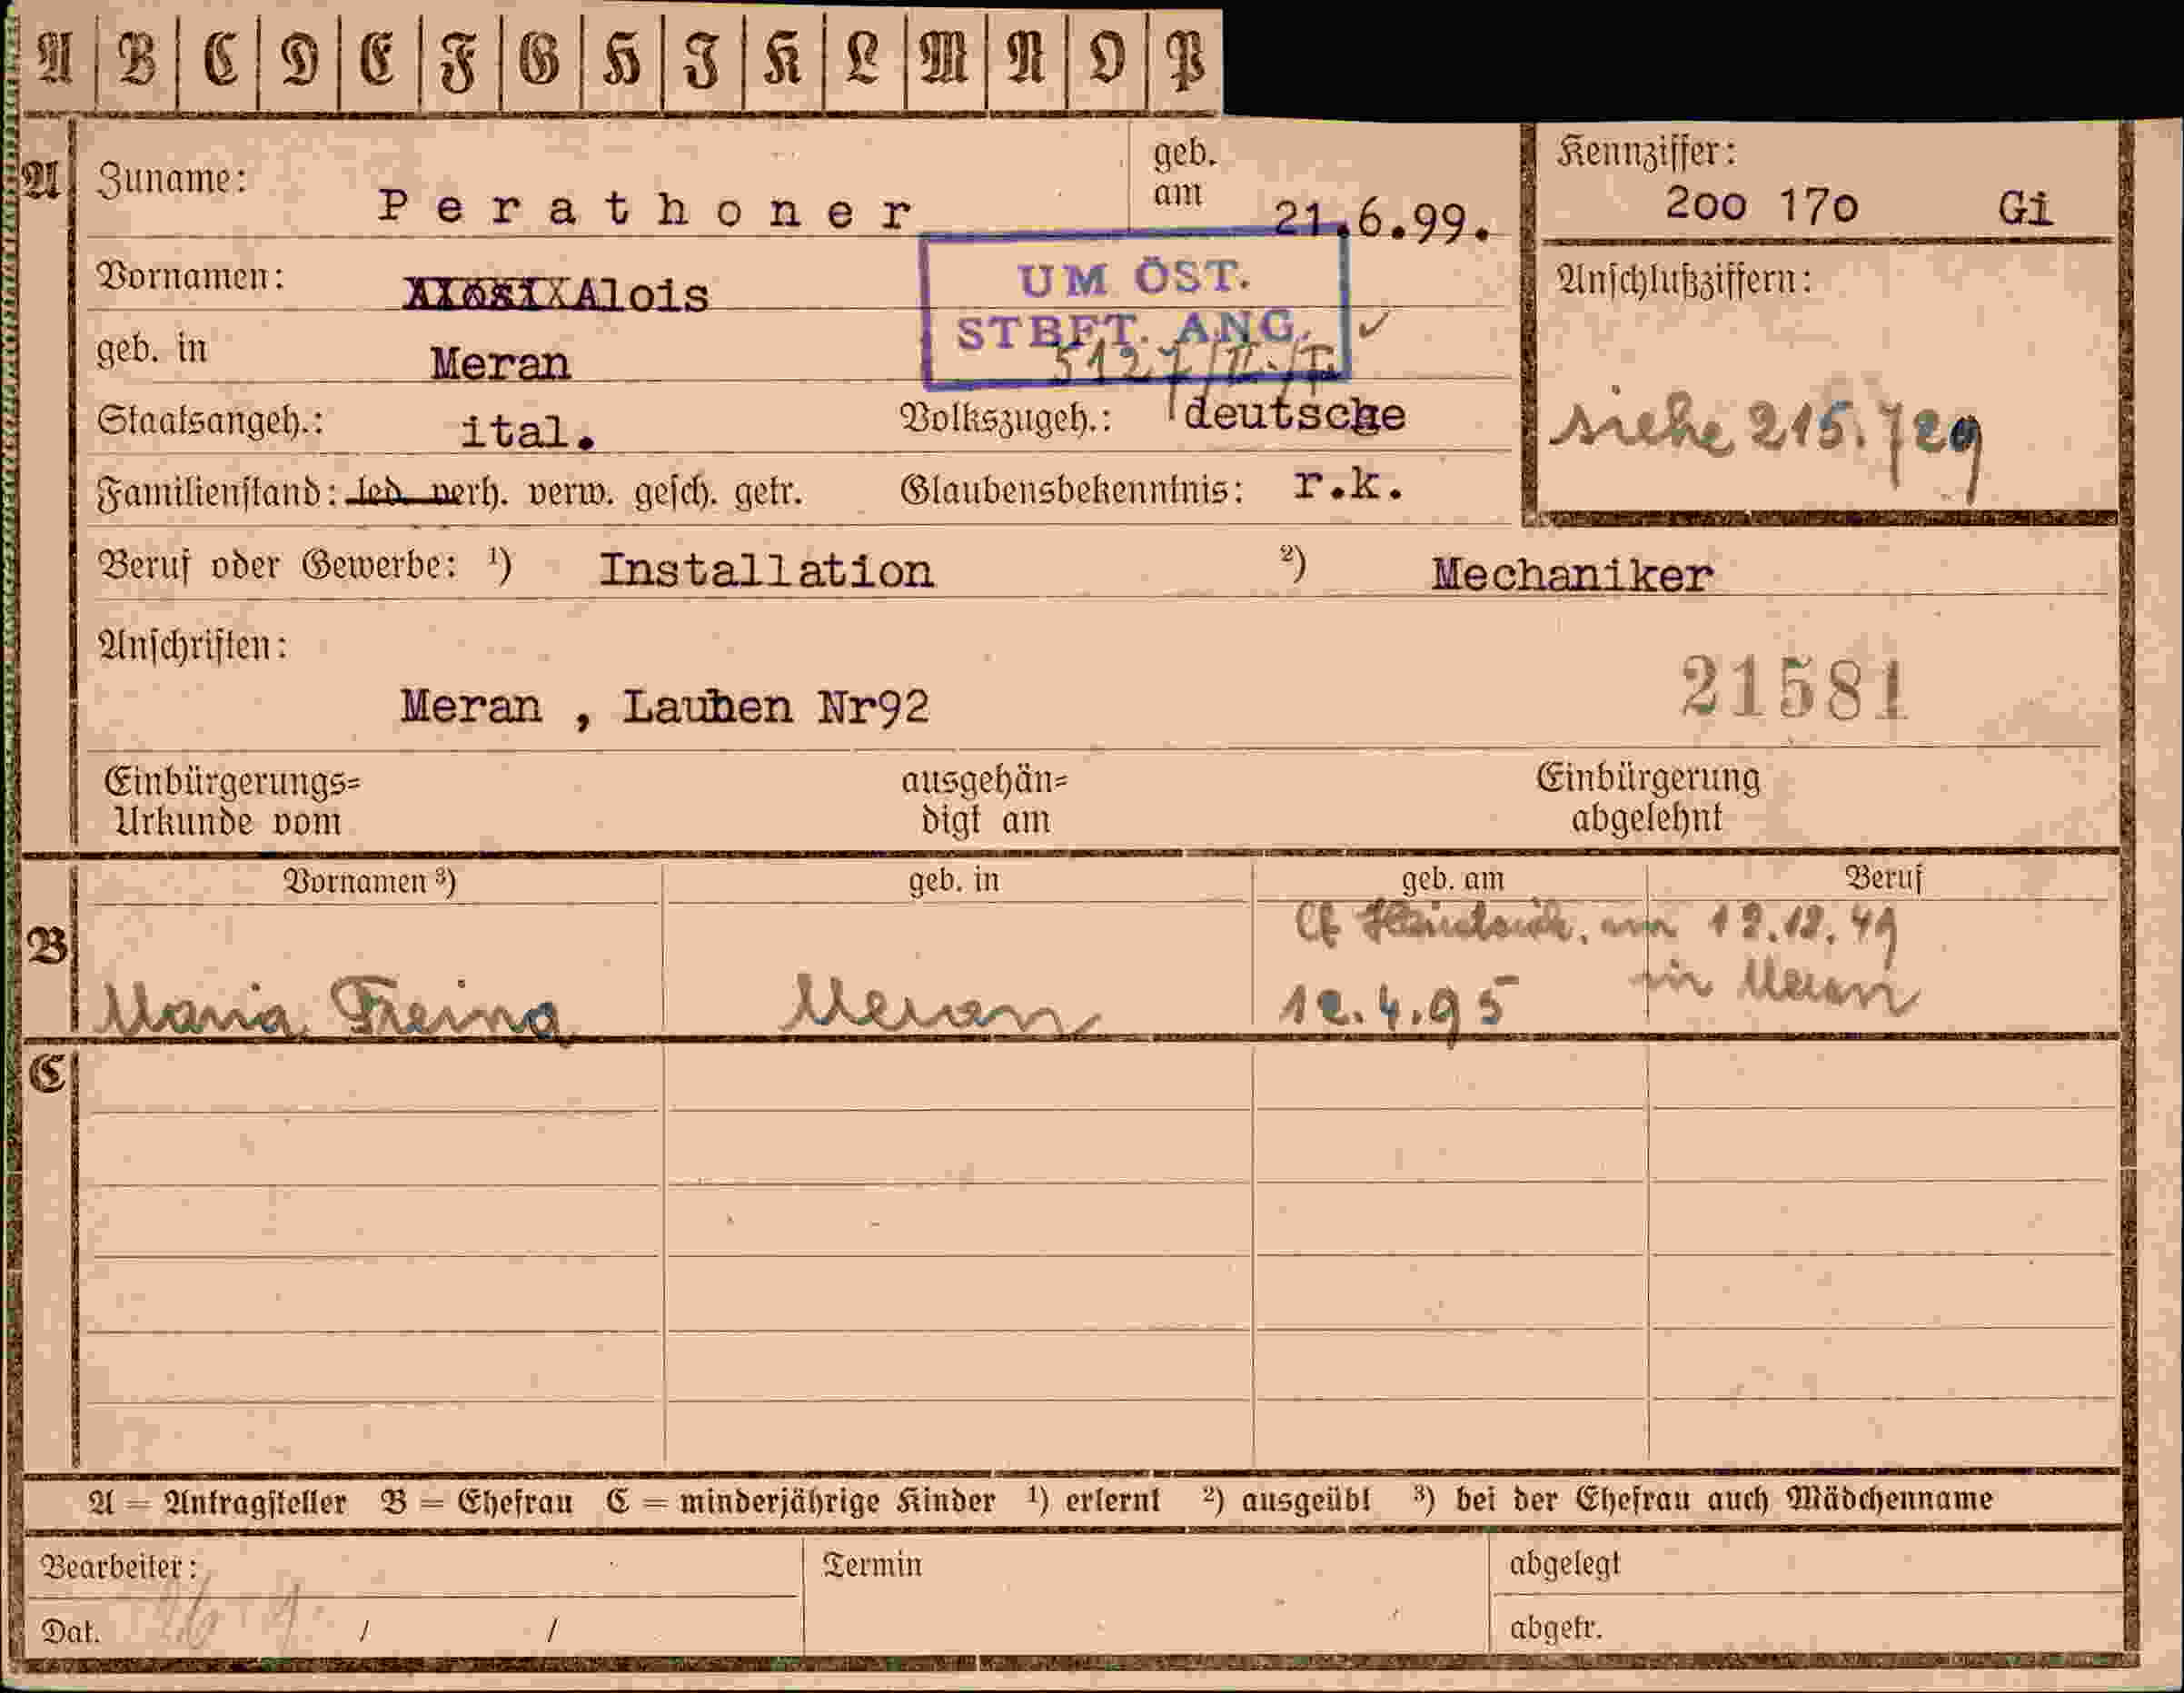 A B C D E F G H I K L M N O P
A Zuname: Perathoner geb. am 21.6.99. Kennziffer: 200 170 Gi
Vornamen: Alois UM ÖST. Anschlußziffern:
STBFT. ANG.
geb. in Meran 5127
siehe 215.729
Staatsangeh.: ital. Volkszugeh.: deutsche
Familienstand: led. verh. verw. gesch. getr. Glaubensbekenntnis: r.k.
Beruf oder Gewerbe: 1) Installation 2) Mechaniker
Anschriften:
21581
Meran , Lauben Nr92
Einbürgerungs= ausgehän= Einbürgerung
Urkunde vom digt am abgelehnt
Vornamen 3) geb. in geb. am Beruf
am 12.12.49
B in Meran
Maria Freina Meran 12.4.95
C
A = Antragsteller B = Ehefrau C = minderjährige Kinder 1) erlernt 2) ausgeübt 3) bei der Ehefrau auch Mädchenname
Bearbeiter: Termin abgelegt
Dat. / / abgetr.